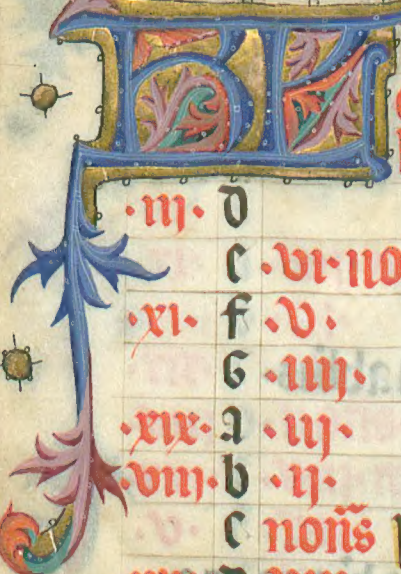 KL
·iij· d
e ·vi· no
·xi· f ·v·
G ·iiij·
·xix· a ·iij·
·viij· b ·ij·
c non̄s